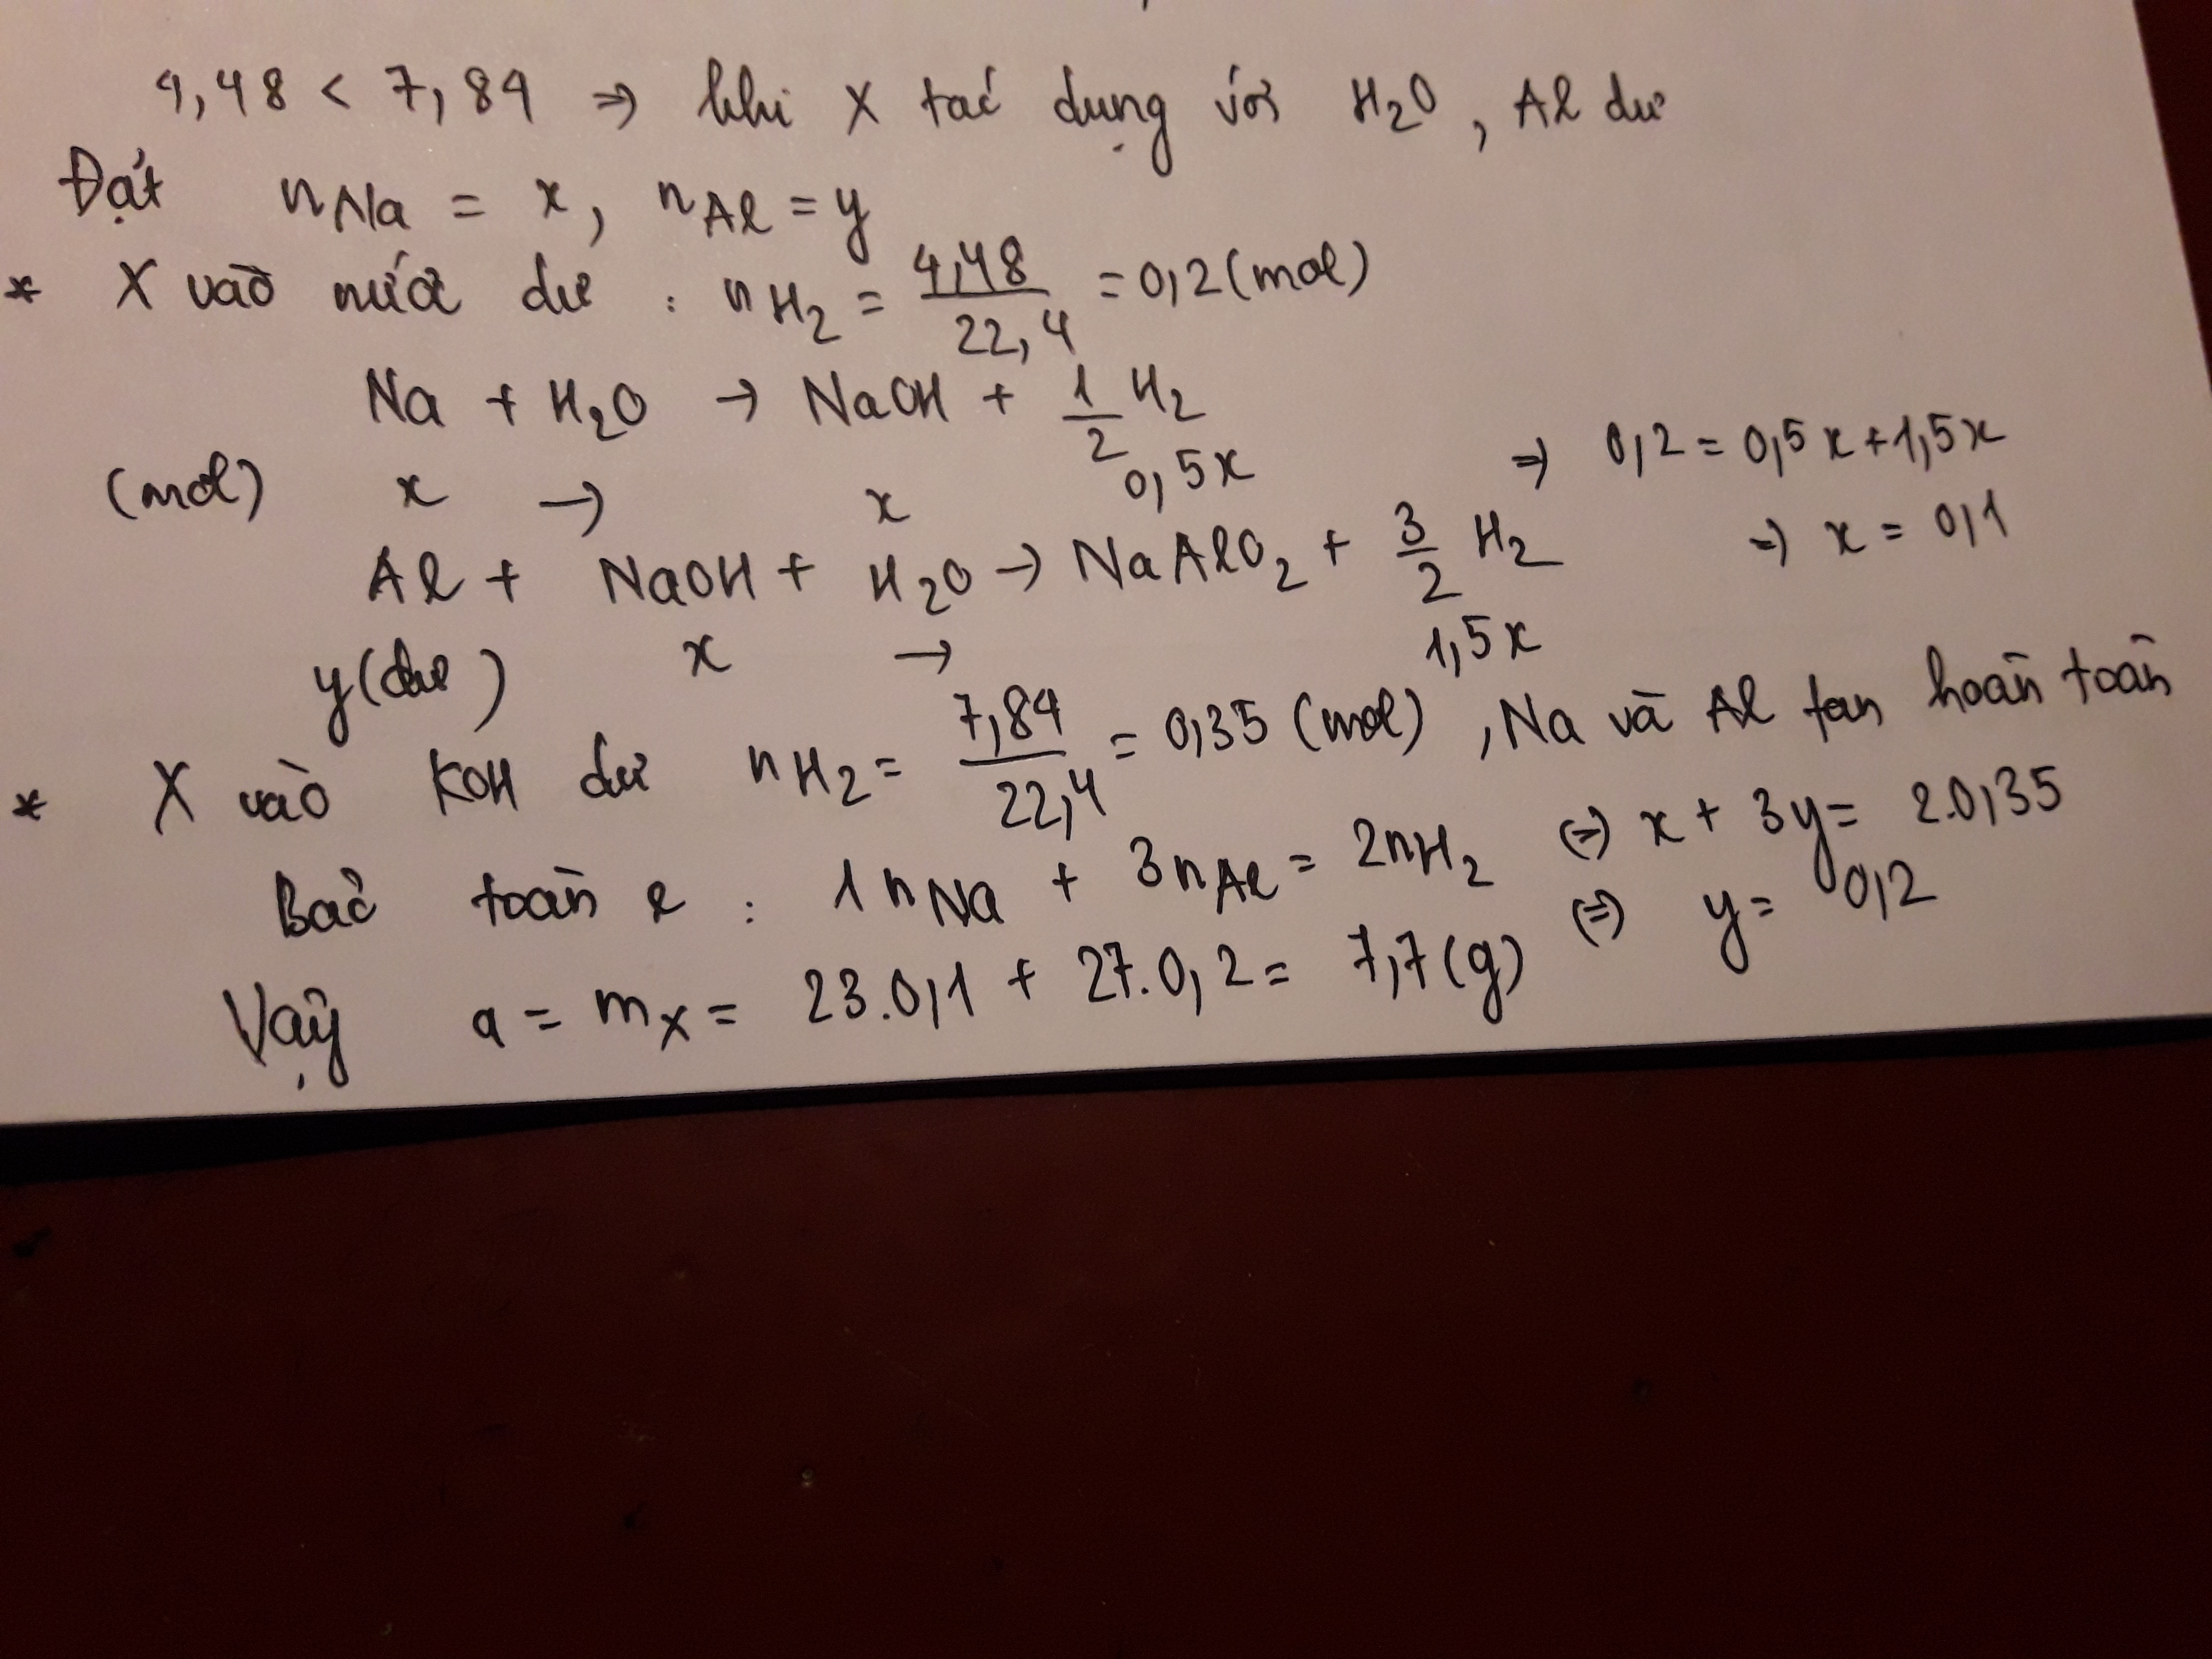 4,48 < 7,84 => khi X tác dụng với H2O, Al dư
Đặt nNa = x, nAl = y
* X vào nước dư : nH2 = 4,48/22,4 = 0,2 (mol)
Na + H2O → NaOH + 1/2 H2
(mol) x → x 0,5x => 0,2 = 0,5x + 1,5x
Al + NaOH + H2O → NaAlO2 + 3/2 H2 => x = 0,1
y(dư) x → 1,5x
* X vào KOH dư nH2 = 7,84/22,4 = 0,35 (mol), Na và Al tan hoàn toàn
Bảo toàn e : 1nNa + 3nAl = 2nH2 (=) x + 3y = 2.0,35
(=) y = 0,2
Vậy a = mX = 23.0,1 + 27.0,2 = 7,7 (g)